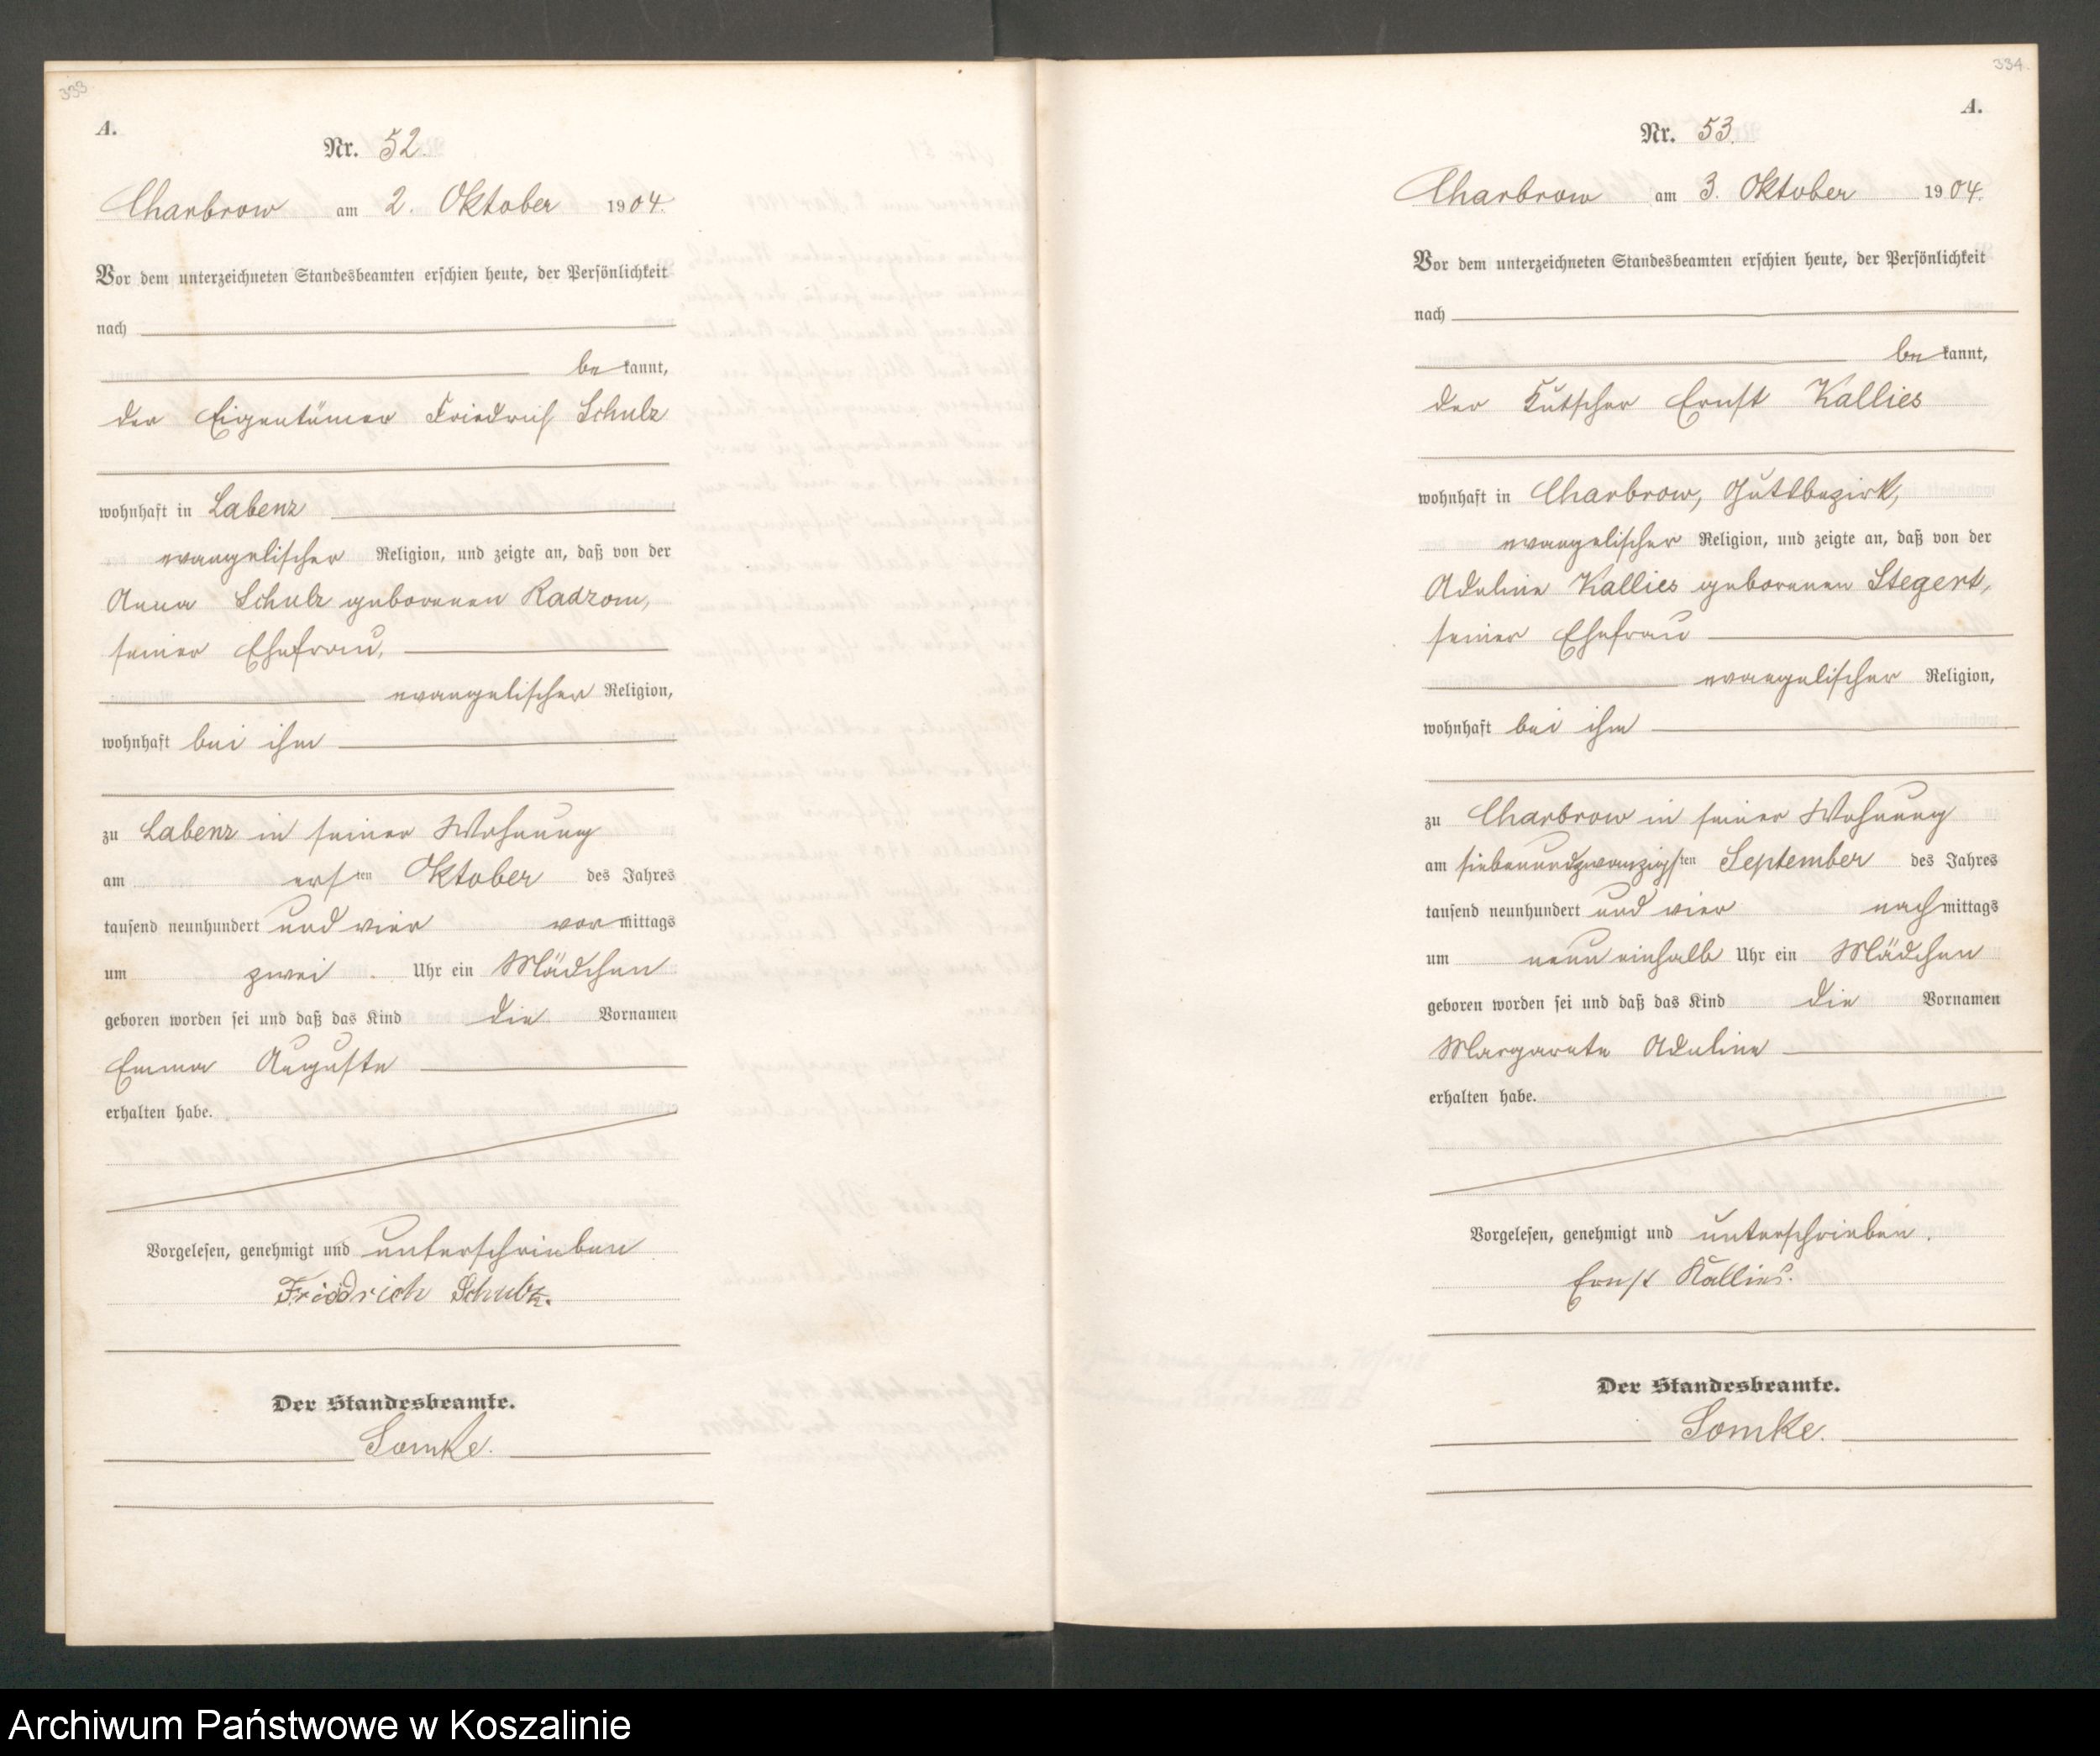 333
A.
Nr. 52.
Charbrow am 2. Oktober 1904.
Vor dem unterzeichneten Standesbeamten erschien heute, der Persönlichkeit
nach
be kannt,
der Eigentümer Friedrich Schulz
wohnhaft in Labenz
evangelischer Religion, und zeigte an, daß von der
Anna Schulz geborenen Radzom,
seiner Ehefrau,
evangelischer Religion,
wohnhaft bei ihm
zu Labenz in seiner Wohnung
am ersten Oktober des Jahres
tausend neunhundert und vier vormittags
um zwei Uhr ein Mädchen
geboren worden sei und daß das Kind die Vornamen
Emma Auguste
erhalten habe.
Vorgelesen, genehmigt und unterschrieben
Friedrich Schulz.
Der Standesbeamte.
Somke.
334.
A.
Nr. 53.
Charbrow am 3. Oktober 1904.
Vor dem unterzeichneten Standesbeamten erschien heute, der Persönlichkeit
nach
be kannt,
der Kutscher Ernst Kallies
wohnhaft in Charbrow, Gutsbezirk,
evangelischer Religion, und zeigte an, daß von der
Adeline Kallies geborenen Stegert,
seiner Ehefrau
evangelischer Religion,
wohnhaft bei ihm
zu Charbrow in seiner Wohnung
am siebenundzwanzigsten September des Jahres
tausend neunhundert und vier nachmittags
um neuneinhalb Uhr ein Mädchen
geboren worden sei und daß das Kind die Vornamen
Margarete Adeline
erhalten habe.
Vorgelesen, genehmigt und unterschrieben.
Ernst Kallies.
Der Standesbeamte.
Somke.
Archiwum Państwowe w Koszalinie